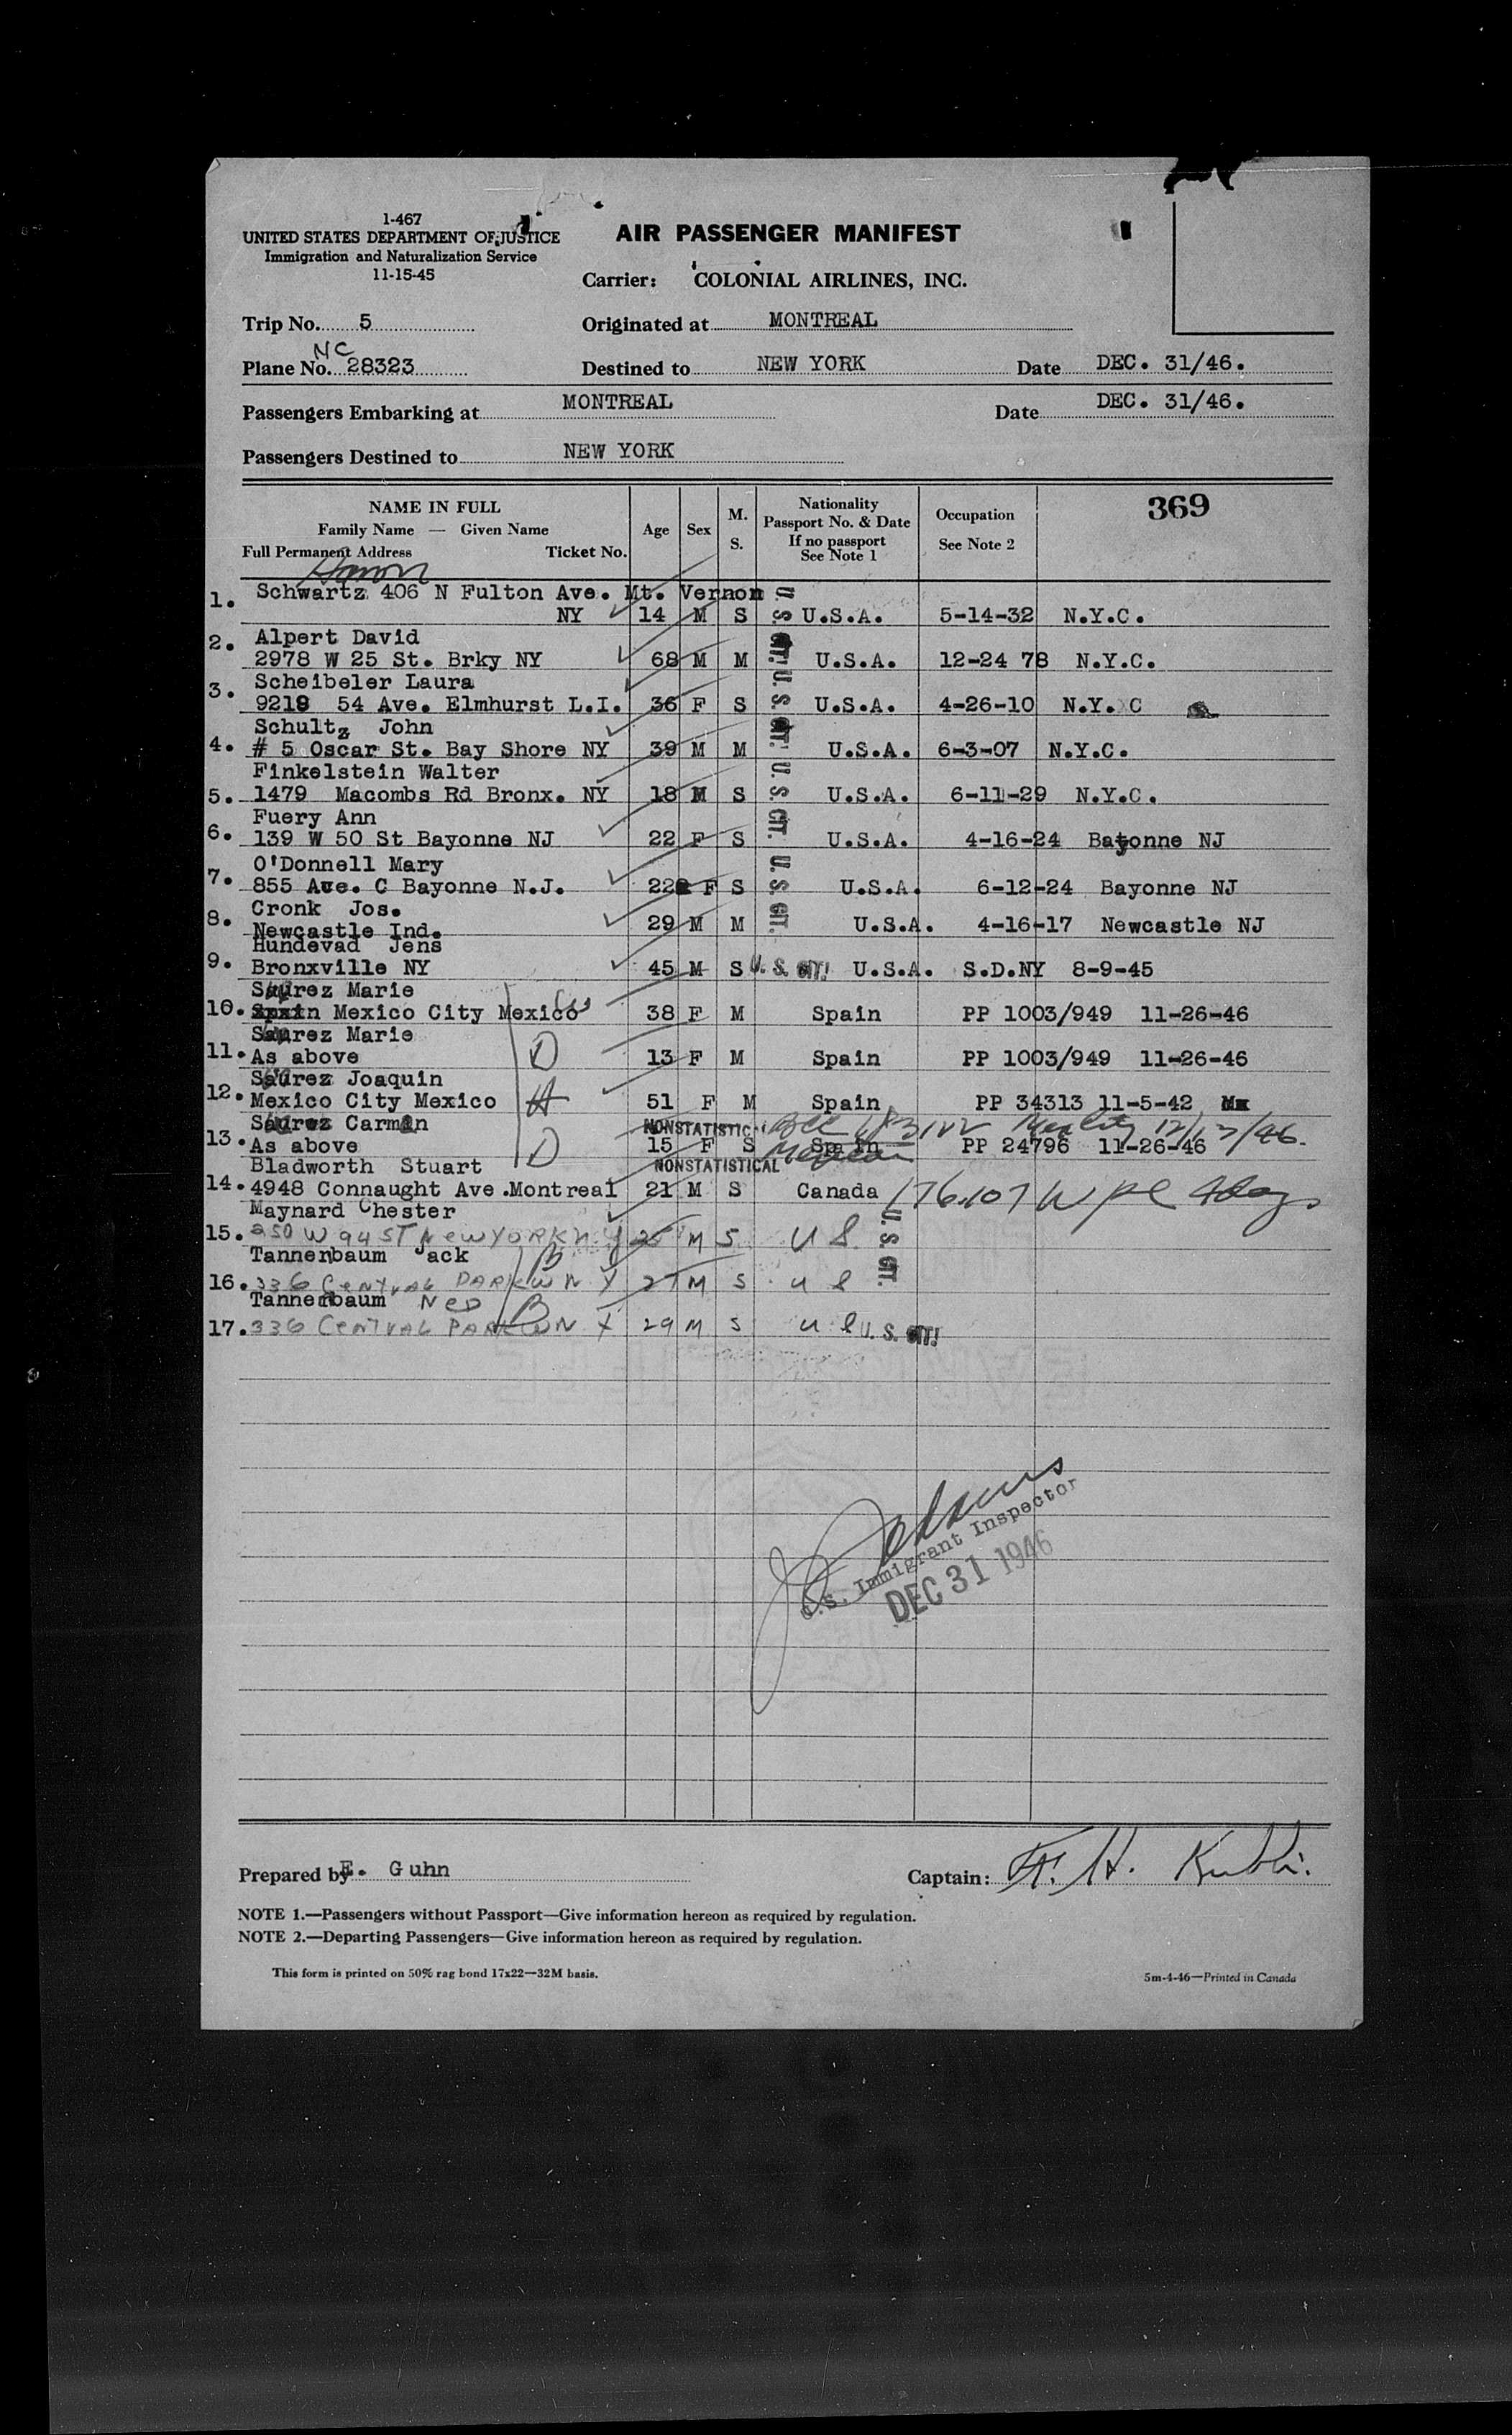 1-467
UNITED STATES DEPARTMENT OF JUSTICE
Immigration and Naturalization Service
11-15-45
AIR PASSENGER MANIFEST
Carrier: COLONIAL AIRLINES, INC.
Trip No. 5
Originated at MONTREAL
NC
Plane No. 28323
Destined to NEW YORK
Date DEC. 31/46.
Passengers Embarking at MONTREAL
Date DEC. 31/46.
Passengers Destined to NEW YORK
NAME IN FULL
Family Name — Given Name
Full Permanent Address Ticket No.
Age
Sex
M.
S.
Nationality
Passport No. & Date
If no passport
See Note 1
Occupation
See Note 2
369
1. Schwartz 406 N Fulton Ave. Mt. Vernon
NY 14 M S U.S.A. 5-14-32 N.Y.C.
2. Alpert David
2978 W 25 St. Brky NY 68 M M U.S.A. 12-24 78 N.Y.C.
3. Scheibeler Laura
9218 54 Ave. Elmhurst L.I. 36 F S U.S.A. 4-26-10 N.Y. C
4. Schultz John
# 5 Oscar St. Bay Shore NY 39 M M U.S.A. 6-3-07 N.Y.C.
5. Finkelstein Walter
1479 Macombs Rd Bronx. NY 18 M S U.S.A. 6-11-29 N.Y.C.
6. Fuery Ann
139 W 50 St Bayonne NJ 22 F S U.S.A. 4-16-24 Bayonne NJ
7. O'Donnell Mary
855 Ave. C Bayonne N.J. 22 F S U.S.A. 6-12-24 Bayonne NJ
8. Cronk Jos.
Newcastle Ind. 29 M M U.S.A. 4-16-17 Newcastle NJ
9. Hundevad Jens
Bronxville NY 45 M S U. S. CIT. U.S.A. S.D.NY 8-9-45
10. Saurez Marie
Mexico City Mexico 38 F M Spain PP 1003/949 11-26-46
11. Saurez Marie
As above D 13 F M Spain PP 1003/949 11-26-46
12. Saurez Joaquin
Mexico City Mexico H 51 F M Spain PP 34313 11-5-42
NONSTATISTIC
13. Saurez Carmen
As above D 15 F S Spain PP 24796 11-26-46
Mexican
NONSTATISTICAL
14. Bladworth Stuart
4948 Connaught Ave.Montreal 21 M S Canada
15. Maynard Chester
250 W 94 ST NEW YORK N Y 25 M S U S U. S. CIT.
16. Tannenbaum Jack B
336 CENTRAL PARK W N Y 27 M S U S
17. Tannenbaum Ned B
336 CENTRAL PARK W N Y 29 M S U S U. S. CIT.
U.S. Immigrant Inspector
DEC 31 1946
Prepared by E. Guhn
Captain: F. H.
NOTE 1.—Passengers without Passport—Give information hereon as required by regulation.
NOTE 2.—Departing Passengers—Give information hereon as required by regulation.
This form is printed on 50% rag bond 17x22—32M basis.
5m-4-46—Printed in Canada